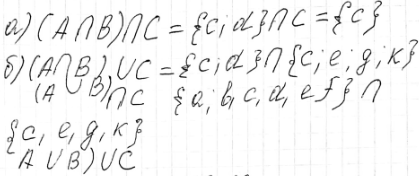 а) (A∩B)∩C = {c, d}∩C = {c}
б) (A∩B)∪C = {c, d}∩{c, e, g, k}
(A B)∩C {a, b, c, d, e f}∩
{c, e, g, k}
A∪B)∪C